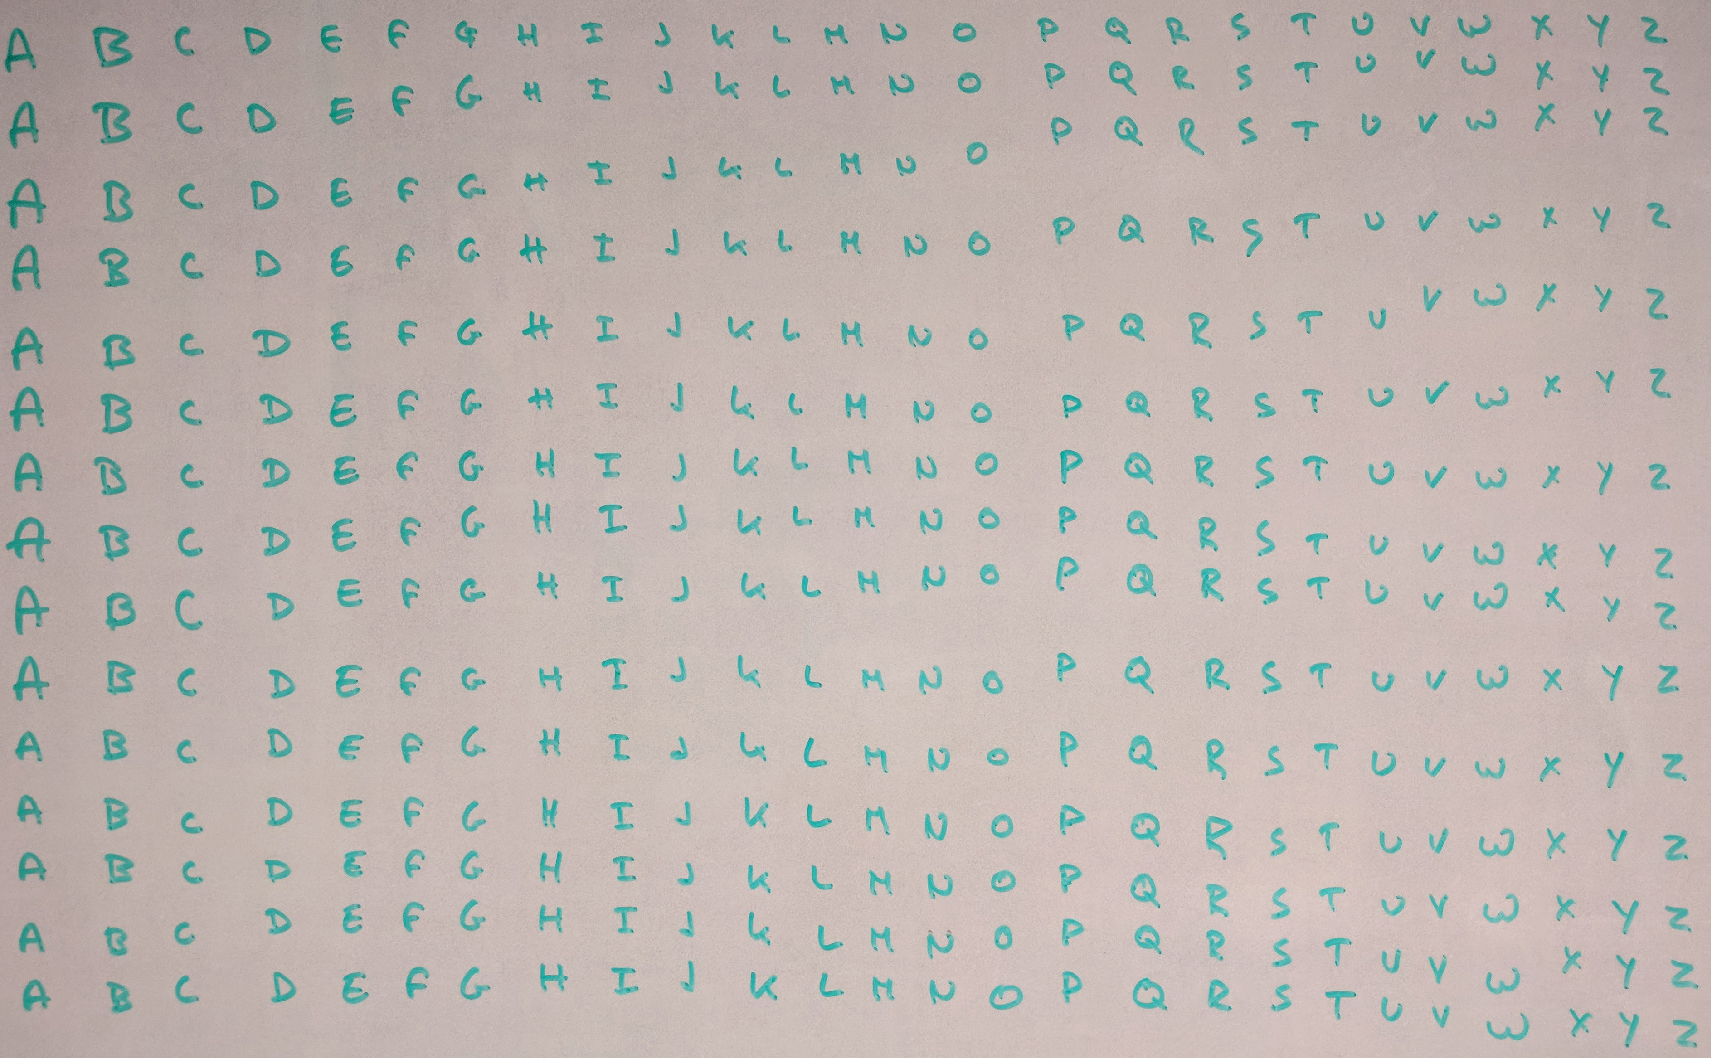 A B C D E F G H I J K L M N O P Q R S T U V W X Y Z
A B C D E F G H I J K L M N O P Q R S T U V W X Y Z
A B C D E F G H I J K L M N O P Q R S T U V W X Y Z
A B C D E F G H I J K L M N O P Q R S T U V W X Y Z
A B C D E F G H I J K L M N O P Q R S T U V W X Y Z
A B C D E F G H I J K L M N O P Q R S T U V W X Y Z
A B C D E F G H I J K L M N O P Q R S T U V W X Y Z
A B C D E F G H I J K L M N O P Q R S T U V W X Y Z
A B C D E F G H I J K L M N O P Q R S T U V W X Y Z
A B C D E F G H I J K L M N O P Q R S T U V W X Y Z
A B C D E F G H I J K L M N O P Q R S T U V W X Y Z
A B C D E F G H I J K L M N O P Q R S T U V W X Y Z
A B C D E F G H I J K L M N O P Q R S T U V W X Y Z
A B C D E F G H I J K L M N O P Q R S T U V W X Y Z
A B C D E F G H I J K L M N O P Q R S T U V W X Y Z